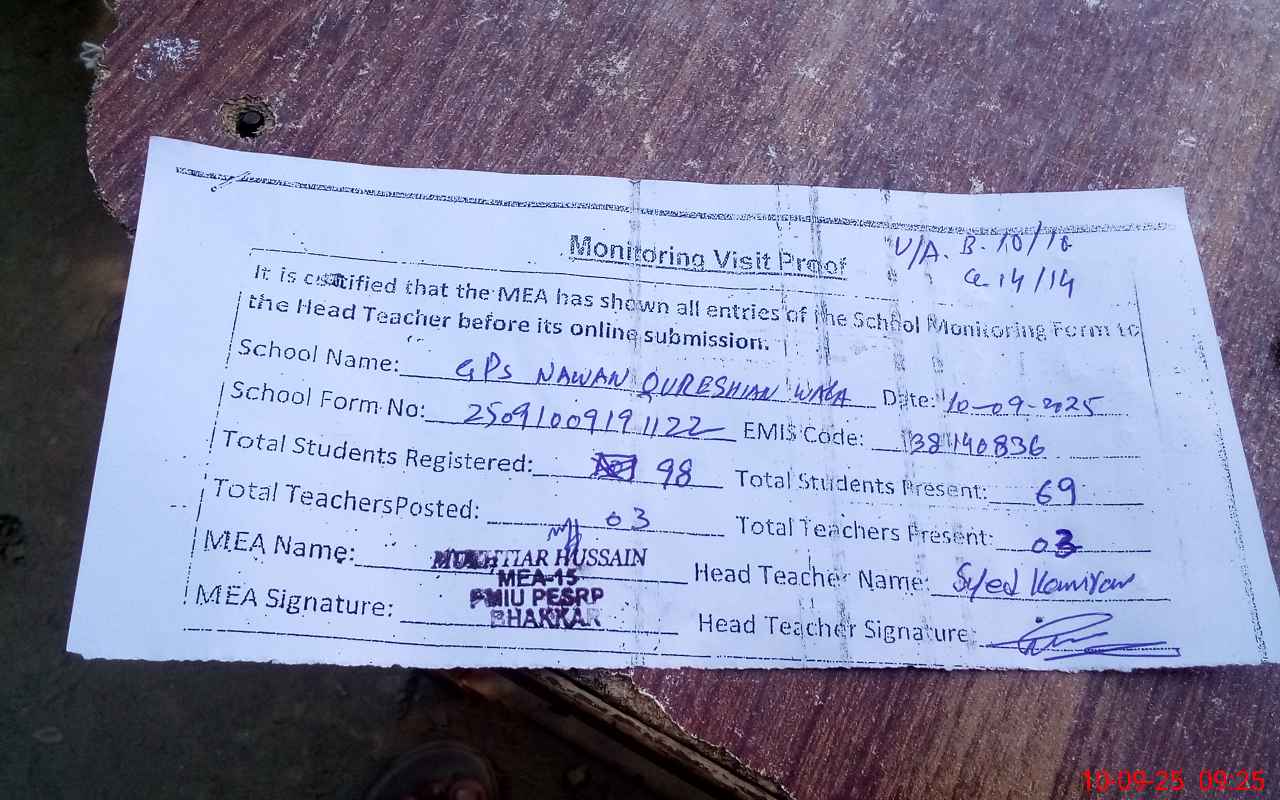 Monitoring Visit Proof
U/A. B. 10/10
G 14/14
It is certified that the MEA has shown all entries of the School Monitoring Form to
the Head Teacher before its online submission.
School Name: GPS NAWAN QURESHIAN WALA Date: 10-09-2025
School Form No: 25091009191122 EMIS Code: 38140836
Total Students Registered: 98 Total Students Present: 69
Total TeachersPosted: 03 Total Teachers Present: 03
MEA Name: MUKHTIAR HUSSAIN Head Teacher Name: Syed Kamran
MEA-15
PMIU PESRP
MEA Signature: BHAKKAR Head Teacher Signature:
10-09-25 09:25